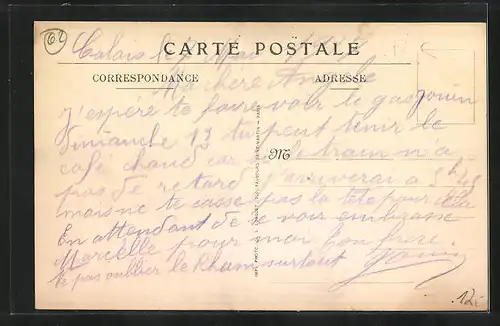 62
Calais le Mai
CARTE POSTALE
CORRESPONDANCE ADRESSE
Ma chère Angèle
J'espère te faire voir le
Dimanche 13 tu peut tenir le
café chaud car si le train n'a
M
pas de retard j'arriverai a 5h
mais ne te casse pas la tete pour cela
En attendant de te voir embrasse
Marcelle pour moi ton frere
te pas oublier le Rhum surtout
12.-